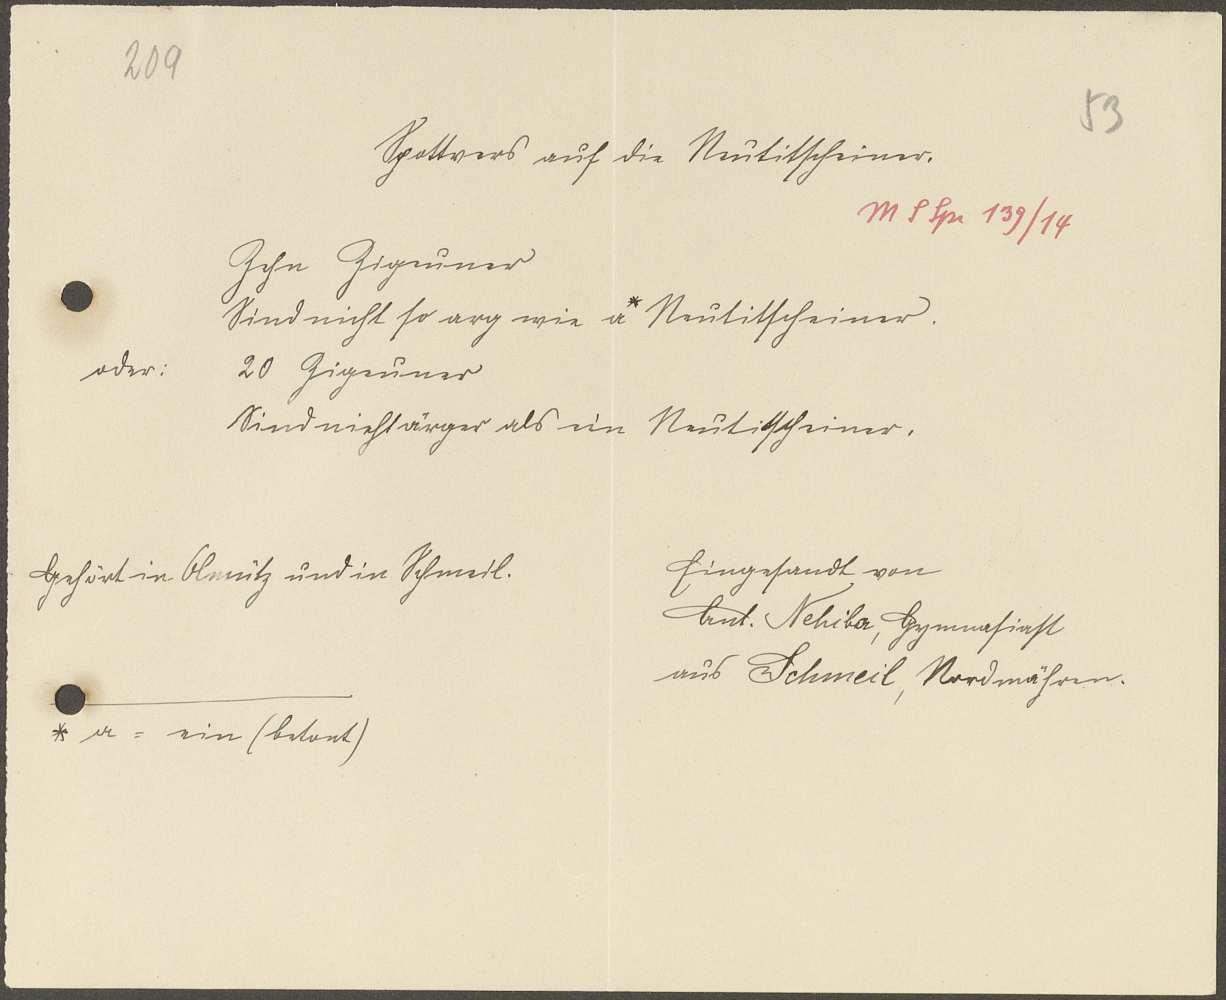 209
53
Spottvers auf die Neutitscheiner.
M S Spr 139/14
Zehn Zigeuner
Sind nicht so arg wie a* Neutitscheiner.
oder: 20 Zigeuner
Sind nicht ärger als ein Neutitscheiner.
Gehört in Olmütz und in Schmeil.
Eingesandt von
Ant. Nehiba, Gymnasiast
aus Schmeil, Nordmähren.
* a = ein (betont)